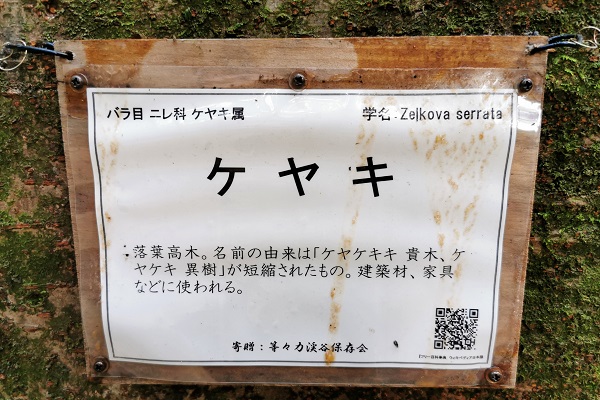 バラ目 ニレ科 ケヤキ属
学名:Zelkova serrata
ケヤキ
落葉高木。名前の由来は「ケヤケキキ 貴木、ケ
ヤケキ 異樹」が短縮されたもの。建築材、家具
などに使われる。
寄贈：等々力渓谷保存会